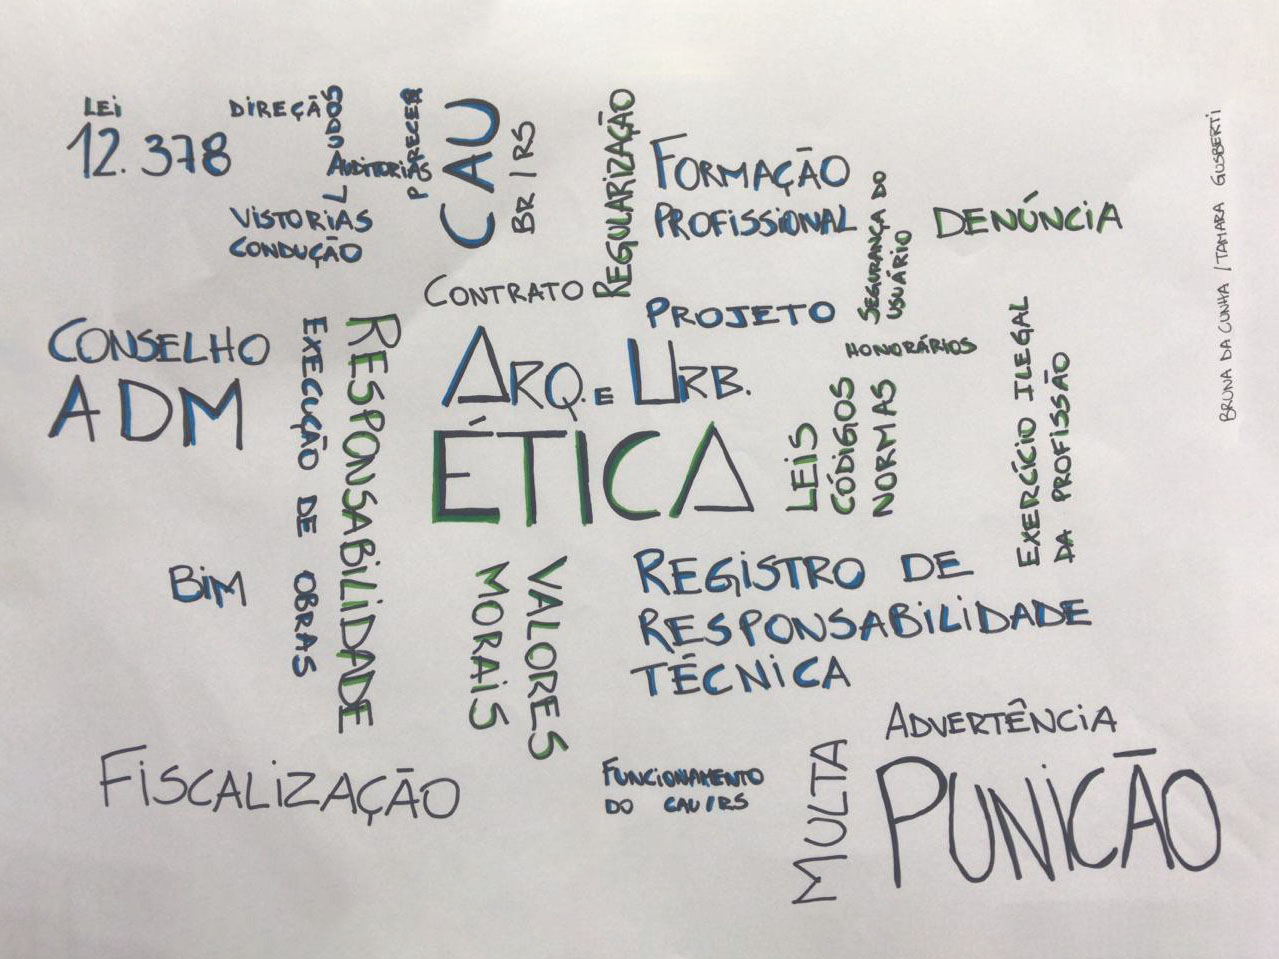 LEI
12.378
DIREÇÃO
LAUDOS
AUDITORIAS
PARECER
VISTORIAS
CONDUÇÃO
CAU
BR/RS
REGULARIZAÇÃO
FORMAÇÃO
PROFISSIONAL
SEGURANÇA DO
USUÁRIO
DENÚNCIA
BRUNA DA CUNHA / TAMARA GUSBERTI
CONTRATO
PROJETO
HONORÁRIOS
CONSELHO
ADM
EXECUÇÃO DE OBRAS
RESPONSABILIDADE
ARQ. E URB.
ÉTICA
LEIS
CÓDIGOS
NORMAS
EXERCÍCIO ILEGAL
DA PROFISSÃO
BIM
VALORES
MORAIS
REGISTRO DE
RESPONSABILIDADE
TÉCNICA
FISCALIZAÇÃO
FUNCIONAMENTO
DO CAU/RS
MULTA
ADVERTÊNCIA
PUNICÃO